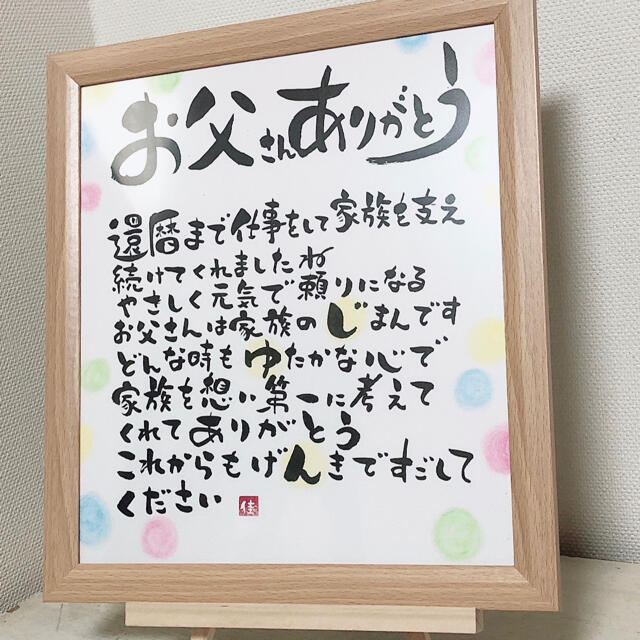 お父さんありがとう
還暦まで仕事をして家族を支え
続けてくれましたね
やさしく元気で頼りになる
お父さんは家族のじまんです
どんな時もゆたかな心で
家族を想い第一に考えて
くれてありがとう
これからもげんきですごして
ください
佳